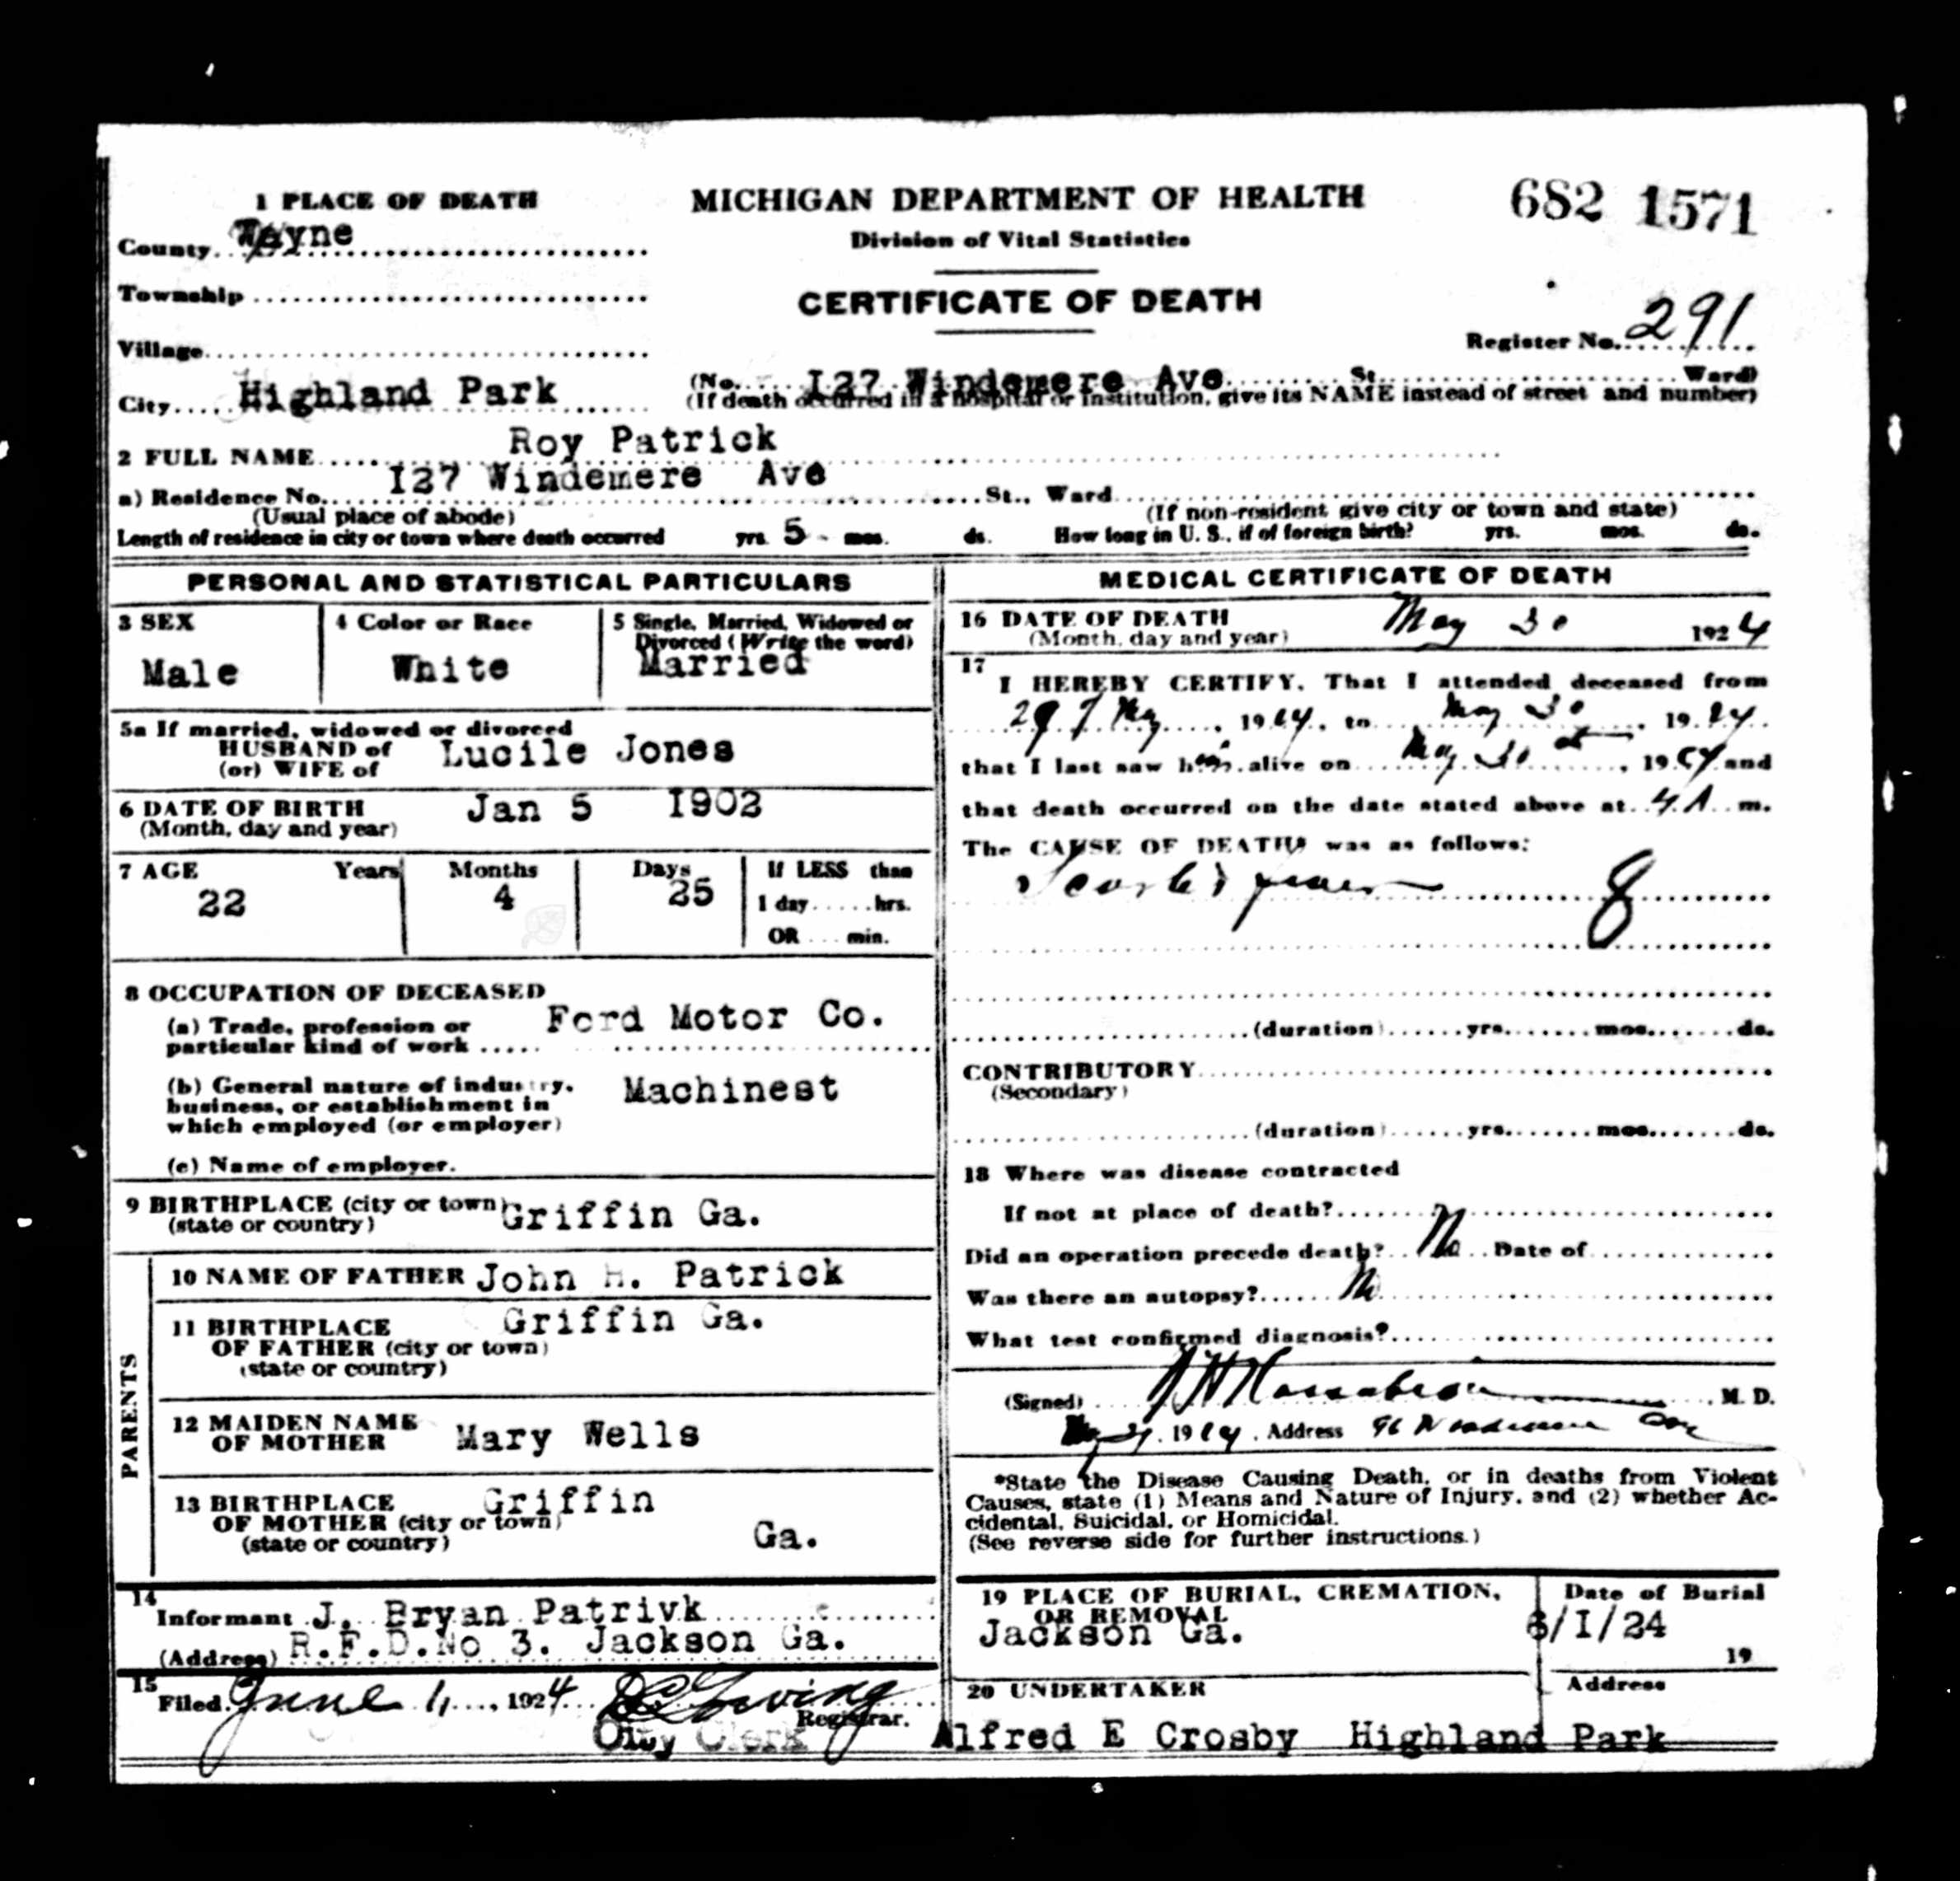 682 1571
1 PLACE OF DEATH
MICHIGAN DEPARTMENT OF HEALTH
Division of Vital Statistics
CERTIFICATE OF DEATH
County Wayne
Township
Village
Register No. 291
City Highland Park
(No. I27 Windemere Ave St. Ward)
(If death occurred in a hospital or institution, give its NAME instead of street and number)
2 FULL NAME Roy Patrick
a) Residence No. I27 Windemere Ave St., Ward
(Usual place of abode) (If non-resident give city or town and state)
Length of residence in city or town where death occurred yrs. 5 mos. ds. How long in U. S., if of foreign birth? yrs. mos. ds.
PERSONAL AND STATISTICAL PARTICULARS
3 SEX
Male
4 Color or Race
White
5 Single, Married, Widowed or
Divorced (Write the word)
Married
5a If married, widowed or divorced
HUSBAND of
(or) WIFE of
Lucile Jones
6 DATE OF BIRTH Jan 5 I902
(Month, day and year)
7 AGE Years Months Days If LESS than
22 4 25 1 day hrs.
OR min.
8 OCCUPATION OF DECEASED
(a) Trade, profession or
particular kind of work
Ford Motor Co.
(b) General nature of industry,
business, or establishment in
which employed (or employer)
Machinest
(c) Name of employer.
9 BIRTHPLACE (city or town) Griffin Ga.
(state or country)
PARENTS
10 NAME OF FATHER John H. Patrick
11 BIRTHPLACE Griffin Ga.
OF FATHER (city or town)
(state or country)
12 MAIDEN NAME
OF MOTHER Mary Wells
13 BIRTHPLACE Griffin
OF MOTHER (city or town)
(state or country) Ga.
14
Informant J. Bryan Patrivk
(Address) R.F.D.No 3. Jackson Ga.
15
Filed June 1, 1924
Registrar.
City Clerk
MEDICAL CERTIFICATE OF DEATH
16 DATE OF DEATH May 30 1924
(Month, day and year)
17
I HEREBY CERTIFY, That I attended deceased from
29 May, 1924, to May 30, 1924
that I last saw him alive on May 30, 1924 and
that death occurred on the date stated above at 4 A m.
The CAUSE OF DEATH* was as follows:
Scarlet fever 8
(duration) yrs. mos. ds.
CONTRIBUTORY
(Secondary)
(duration) yrs. mos. ds.
18 Where was disease contracted
If not at place of death?
Did an operation precede death? No Date of
Was there an autopsy? No
What test confirmed diagnosis?
(Signed) M. D.
1924, Address
*State the Disease Causing Death, or in deaths from Violent
Causes, state (1) Means and Nature of Injury, and (2) whether Ac-
cidental, Suicidal, or Homicidal.
(See reverse side for further instructions.)
19 PLACE OF BURIAL, CREMATION,
OR REMOVAL
Jackson Ga.
Date of Burial
6/I/24
19
20 UNDERTAKER Address
Alfred E Crosby Highland Park